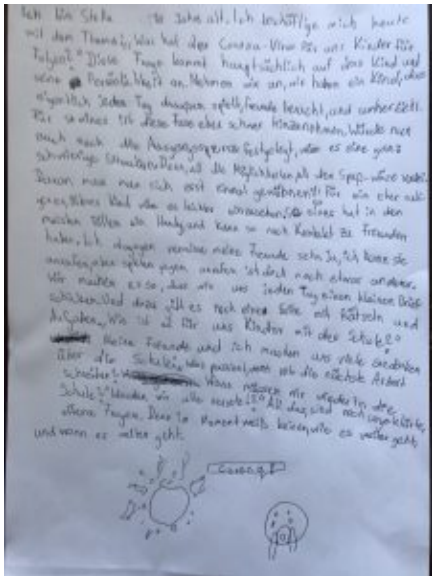 Ich bin Stella Jahre alt. Ich beschäftige mich heute
mit dem Thema: „Was hat der Corona-Virus für uns Kinder für
Folgen?" Diese Frage kommt hauptsächlich auf das Kind und
seine Persönlichkeit an. Nehmen wir an, wir haben ein Kind, das
eigentlich jeden Tag draußen spielt, Freunde besucht, und
Für so eines ist diese Phase eher schwer hinzunehmen. Würde nun
auch noch die Ausgangssperre festgelegt, wäre es eine ganz
schwierige Situation. Denn, all die Möglichkeiten, all der Spaß - wäre
Daran muss man sich erst einmal gewöhnen!!! Für ein eher
Kind wäre es leichter eines hat in den
meisten Fällen ein Handy und kann so noch Kontakt zu Freunden
haben. Ich dagegen vermisse meine Freunde sehr. Ja, ich könnte sie
anrufen, aber spielen gegen anrufen ist doch noch etwas anderes.
Wir machen es so, dass wir uns jeden Tag einen kleinen Brief
schicken. Und dazu gibt es noch eine Seite mit Rätseln und
Aufgaben. Wie ist es für uns Kinder mit der Schule?
Meine Freunde und ich machen uns viele Gedanken
über die Schule: Was passiert, wenn wir die nächste Arbeit
schreiben? Wann müssen wir wieder in die
Schule? Werden wir alle versetzt? All das, sind noch ungeklärte,
offene Fragen. Denn im Moment weiß keiner, wie es weiter geht,
und wann es weiter geht.
Corona!